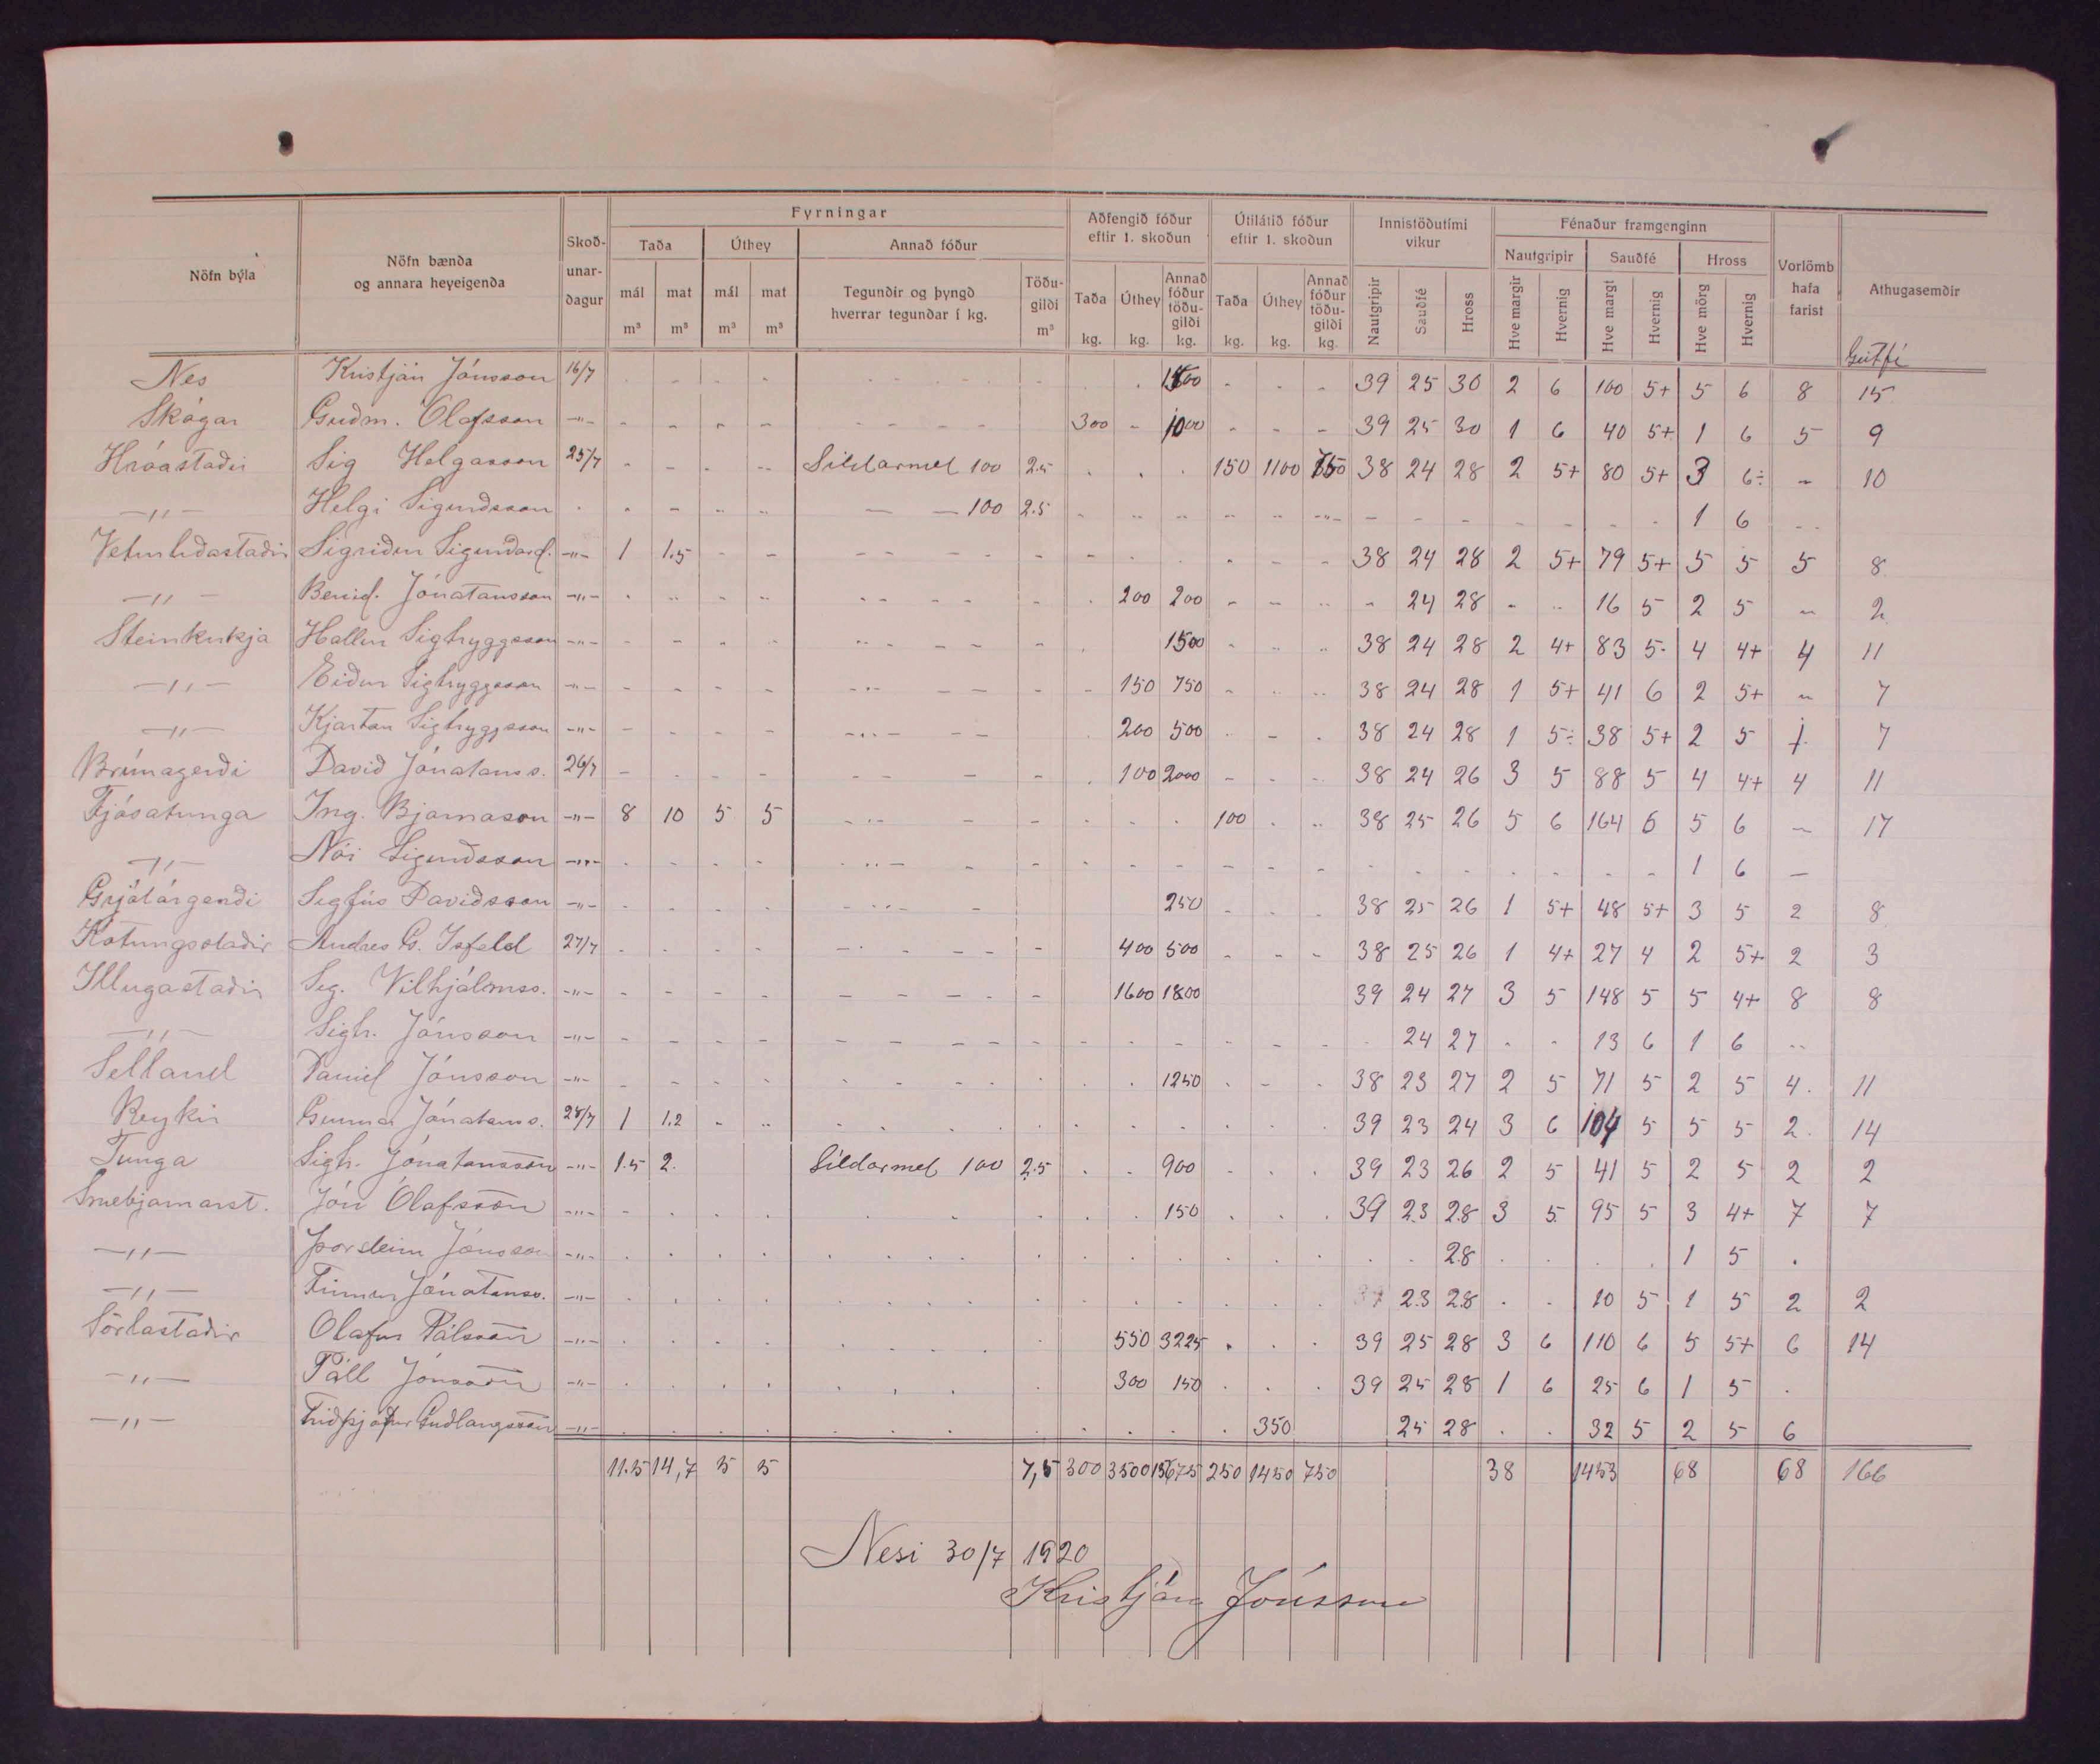 Nöfn býla
Nöfn bænda og annara heyeigenda
Skoðunar-dagur
Fyrningar
Taða mál m³ mat m³
Úthey mál m³ mat m³
Annað fóður
Tegundir og þyngd hverrar tegundar í kg.
Töðugildi m³
Aðfengið fóður eftir 1. skoðun
Taða kg. Úthey kg. Annað fóður töðugildi kg.
Útilátið fóður eftir 1. skoðun
Taða kg. Úthey kg. Annað fóður töðugildi kg.
Innistöðutími vikur
Nautgripir Sauðfé Hross
Fénaður framgenginn
Nautgripir Hve margir Hvernig
Sauðfé Hve margt Hvernig
Hross Hve mörg Hvernig
Vorlömb hafa farist
Athugasemdir
Geitfé
Nes Kristján Jónsson 16/7 - - - - 1500 - - - 39 25 30 2 6 100 5+ 5 6 8 15
Skógar Guðm. Olafsson -"- - - - - 300 - 1000 - - - 39 25 30 1 6 40 5+ 1 6 5 9
Hróastaðir Sig Helgason 25/7 - - - - Sildarmel 100 2.5 . . . 150 1100 750 38 24 28 2 5+ 80 5+ 3 6÷ - 10
-"- Helgi Sigurðsson - - - - — — 100 2.5 - - - - - - - - - - - - - 1 6 -
Veturliðastaðir Sigríður Sigurðard. -"- 1 1.5 - - - - - - 38 24 28 2 5+ 79 5+ 5 5 5 8
-"- Benid. Jónatansson -"- - - - - - 200 200 - - - - 24 28 - - 16 5 2 5 - 2
Steinkirkja Hallur Sigtryggsson -"- - - - - - 1500 - - - 38 24 28 2 4+ 83 5- 4 4+ 4 11
-"- Eiður Sigtryggsson -"- - - - - - - 150 750 - - - 38 24 28 1 5+ 41 6 2 5+ - 7
-"- Kjartan Sigtryggsson -"- - - - - - 200 500 - - - 38 24 28 1 5÷ 38 5+ 2 5 1. 7
Brúnagerði Davið Jónatanss. 26/7 - - - - - 100 2000 - - - 38 24 26 3 5 88 5 4 4+ 4 11
Fjósatunga Ing. Bjarnason -"- 8 10 5 5 - - - - 100 - - 38 25 26 5 6 164 6 5 6 - 17
-"- Nói Sigurðsson -"- - - - - - - - - - - - - - - - - - - 1 6 —
Grjótárgerði Sigfús Daviðsson -"- - - - - - 250 - - - 38 25 26 1 5+ 48 5+ 3 5 2 8
Kotungsstaðir Andres G. Isfeld 27/7 - - - - - 400 500 - - - 38 25 26 1 4+ 27 4 2 5+ 2 3
Illugastaðir Sig. Vilhjálmss. -"- - - - - - 1600 1800 39 24 27 3 5 148 5 5 4+ 8 8
-"- Sigtr. Jónsson -"- - - - - - - - - - - - - 24 27 - - 13 6 1 6 -
Selland Daniel Jónsson -"- - - - - . . . 1250 - - - 38 23 27 2 5 71 5 2 5 4. 11
Reykir Gunnar Jónatanss. 28/7 1 1.2 - - . . . . . . . 39 23 24 3 6 104 5 5 5 2. 14
Tunga Sigtr. Jónatansson -"- 1.5 2. Sildarmel 100 2.5 . . 900 . . . 39 23 26 2 5 41 5 2 5 2 2
Snæbjarnarst. Jón Ólafsson -"- - . . . . . . 150 . . . 39 23 28 3 5. 95 5 3 4+ 7 7
-"- Þorsteinn Jónsson -"- . . . . . . . . . . . . . 28 . . . . 1 5 .
-"- Finnur Jónatanss. -"- . . . . . . . . . . . 39 23 28 . . 10 5 1 5 2 2
Sörlastaðir Olafur Pálsson -"- . . . . . 550 3225 . . . 39 25 28 3 6 110 6 5 5+ 6 14
-"- Páll Jónsson -"- . . . . . 300 150 . . . 39 25 28 1 6 25 6 1 5 .
-"- Friðþjófur Guðlaugsson -"- . . . . . . . . . 350 25 28 . . 32 5 2 5 6
11.5 14,7 5 5 7,5 300 3500 15675 250 1450 750 38 1453 68 68 166
Nesi 30/7 1920
Kristján Jónsson